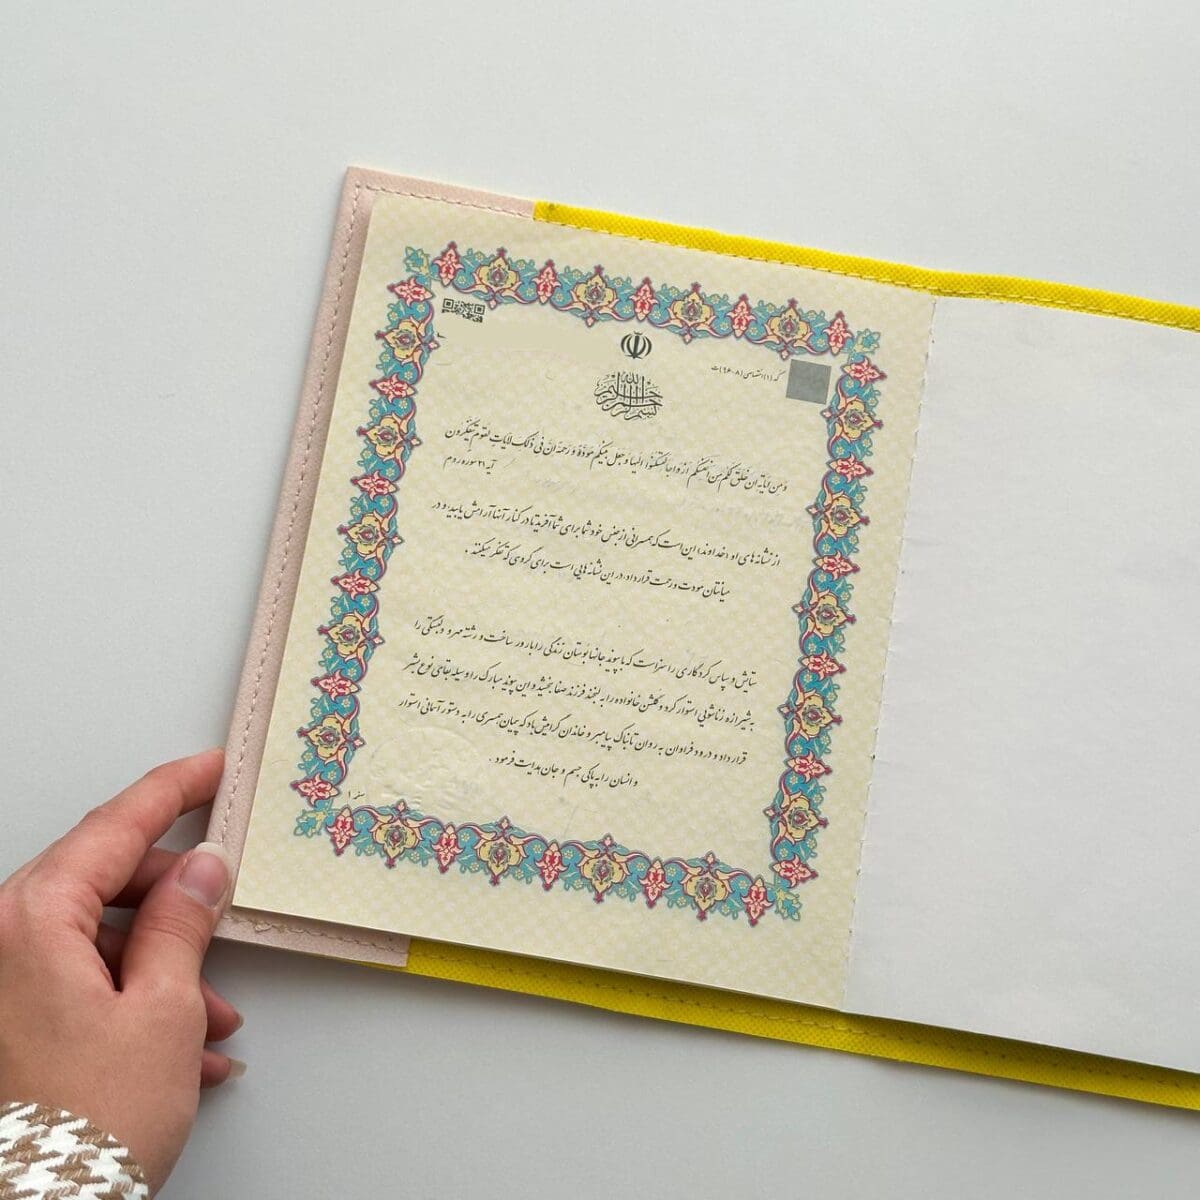 بسم الله الرحمن الرحیم
وَ مِنْ آیاتِهِ اَنْ خَلَقَ لَکُمْ مِنْ اَنْفُسِکُمْ اَزْواجاً لِتَسْکُنُوا اِلَیْها وَ جَعَلَ بَیْنَکُمْ مَوَدَّةً وَ رَحْمَةً اِنَّ فی ذلِکَ لَآیاتٍ لِقَوْمٍ یَتَفَکَّرُونَ
آیه ۲۱ سوره روم
از نشانه های او (خداوند) این است که همسرانی از جنس خود شما برای شما آفرید تا در کنار آنها آرامش یابید و در
میانتان مودت و رحمت قرار داد، در این نشانه هایی است برای گروهی که تفکر میکنند .
ستایش و سپاس کردگاری را سزاست که با پیوند جانها بوستان زندگی را بارور ساخت و رشته مهر و دلبستگی را
به شیرازه زناشویی استوار کرد و گلشن خانواده را به لبخند فرزند صفا بخشید و این پیوند مبارک را وسیله بقای نوع بشر
قرار داد و درود فراوان به روان تابناک پیامبر و خاندان گرامیش باد که پیمان همسری را به دستور آسمانی استوار
و انسان را به پاکی جسم و جان هدایت فرمود .